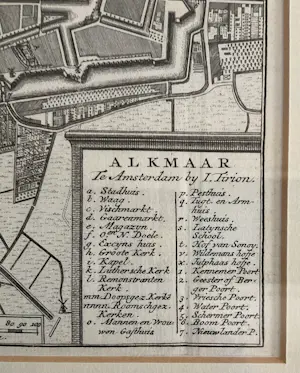 ALKMAAR
Te Amsterdam by I. Tirion.
a. Stadhuis.
b. Waag.
c. Vischmarkt.
d. Gaarenmarkt.
e. Magazyn.
f. O en N. Doele.
g. Excyns huis.
h. Groote Kerk.
i. Kapel.
k. Luthersche Kerk
l. Remonstranten
Kerk.
mm. Doopsgez. Kerke
nnnn. Roomschgez.
Kerken.
o. Mannen en Vrou
wen Gasthuis
p. Pesthuis.
q. Tugt- en Arm-
huis
r. Weeshuis.
s. Latynsche
School.
t. Hof van Sonoy.
v. Wildemans hofje
x. hofje
1. Kennemer Poort.
2. Geester of Ber-
ger Poort.
3. Vriesche Poort.
4. Water Poort.
5. Schermer Poort.
6. Boom Poort.
7. Nieuwlander P.
80 90 100